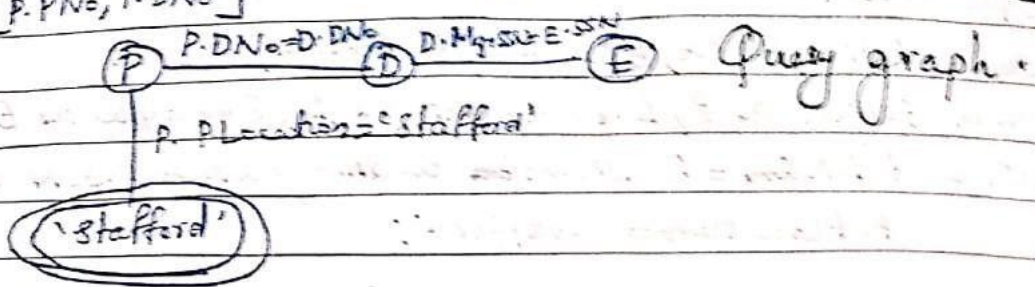 [P.PNo, P.DNo]
P.DNo=D.DNo D.MgrSSN=E.SSN
P D E Query graph.
P.PLocation='Stafford'
'Stafford'